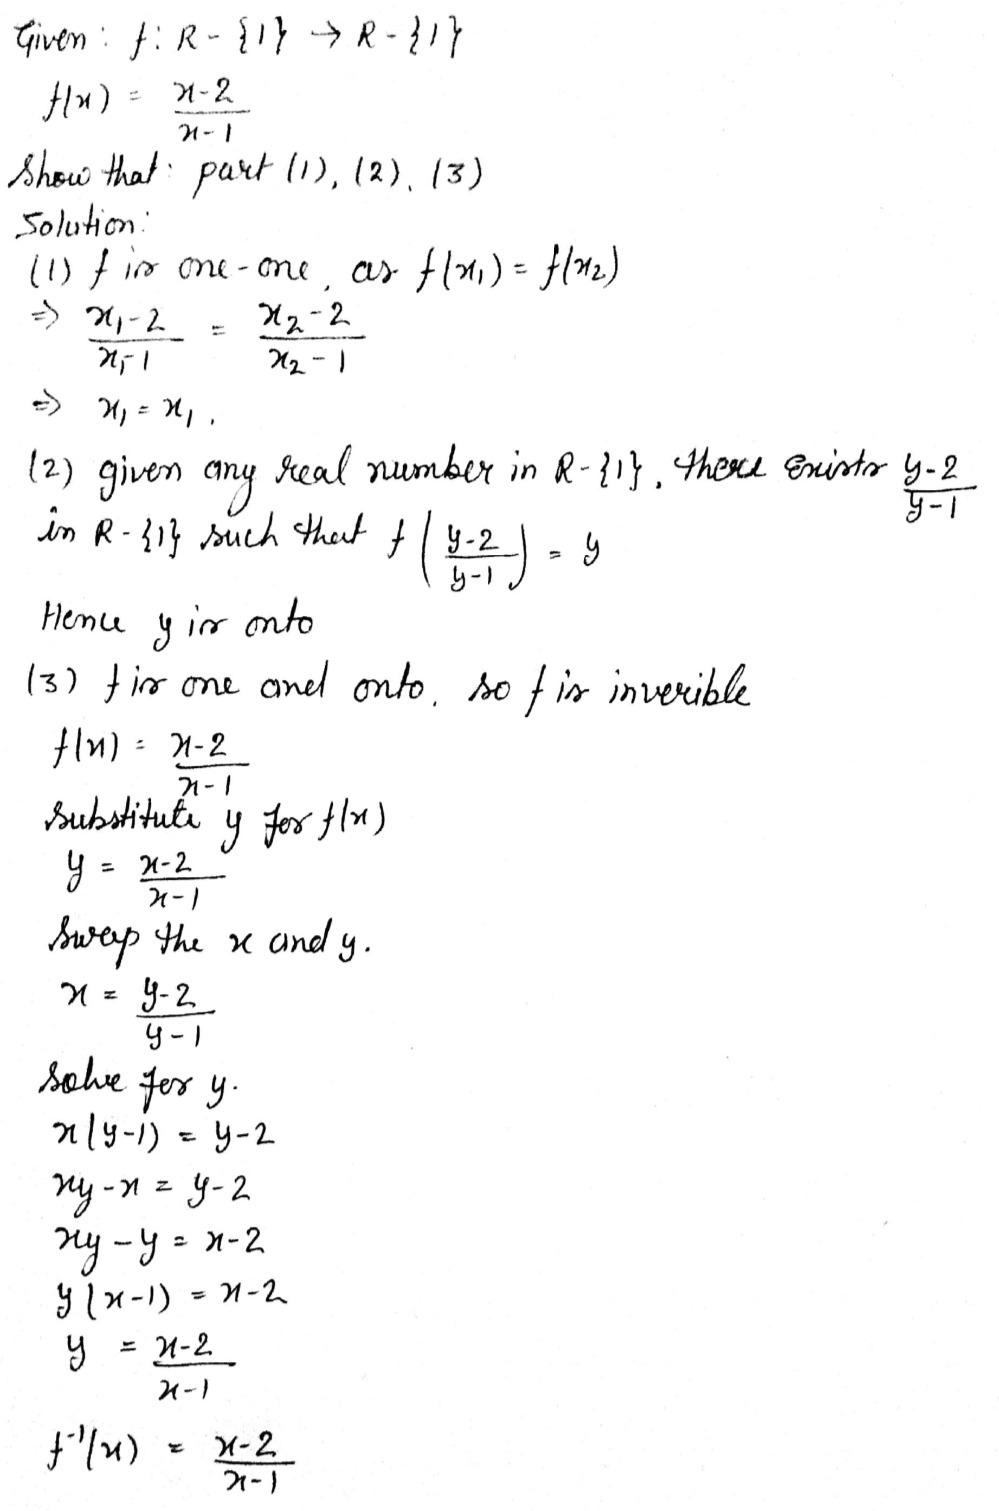 Given: f: R - {1} → R - {1}
f(x) = (x-2)/(x-1)
Show that: part (1), (2), (3)
Solution:
(1) f is one-one, as f(x₁) = f(x₂)
⇒ (x₁-2)/(x₁-1) = (x₂-2)/(x₂-1)
⇒ x₁ = x₁.
(2) given any real number in R-{1}, there exists (y-2)/(y-1)
in R-{1} such that f((y-2)/(y-1)) = y
Hence y is onto
(3) f is one and onto, so f is inverible
f(x) = (x-2)/(x-1)
substitute y for f(x)
y = (x-2)/(x-1)
swap the x and y.
x = (y-2)/(y-1)
solve for y.
x(y-1) = y-2
xy-x = y-2
xy-y = x-2
y(x-1) = x-2
y = (x-2)/(x-1)
f⁻¹(x) = (x-2)/(x-1)